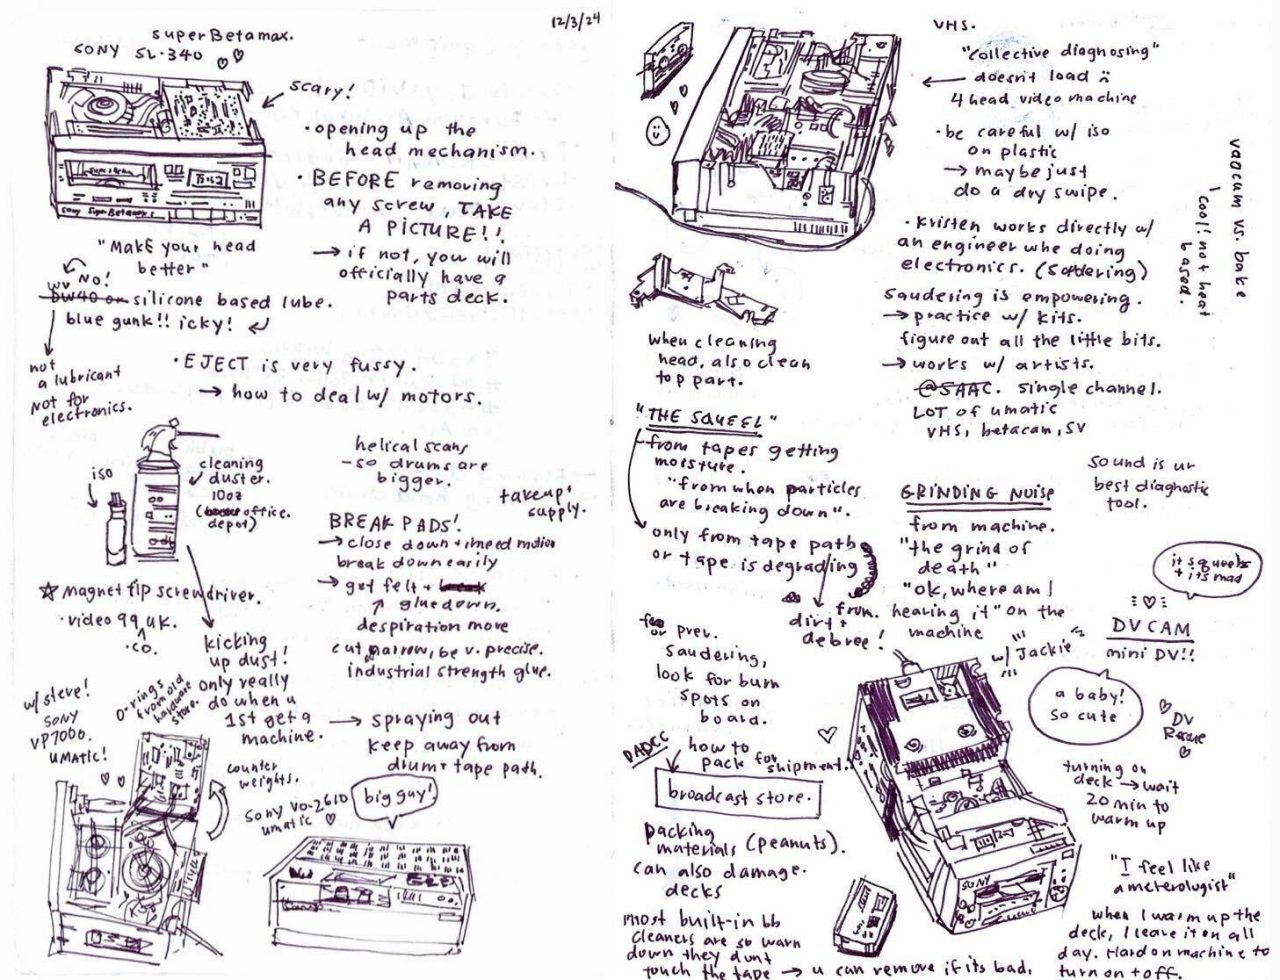 12/3/24
superBetamax.
SONY SL-340
scary!
• opening up the
head mechanism.
• BEFORE removing
any screw, TAKE
A PICTURE!!
→ if not, you will
officially have a
parts deck.
"Make your head
better"
No!
silicone based lube.
blue gunk!! icky!
not
a lubricant
Not for
electronics.
• EJECT is very fussy.
→ how to deal w/ motors.
iso
cleaning
duster.
10oz
office.
depot)
helical scans
- so drums are
bigger.
takeup +
supply.
BREAK PADS!
→ close down +
motion
break down easily
→ get felt +
glue down.
despiration move
cut narrow, be v. precise.
industrial strength glue.
☆ magnet tip screwdriver.
• video 99 uk.
.co.
kicking
up dust!
only really
do when u
1st get a
machine.
→ spraying out
keep away from
drum + tape path.
w/ steve!
SONY
VP7000.
UMATIC!
O-rings
from old
hardware
store.
counter
weights.
SONY VO-2610
umatic
big guy!
VHS.
"collective diagnosing"
doesn't load :(
4 head video machine
• be careful w/ iso
on plastic
→ maybe just
do a dry swipe.
vaacum vs. bake
cool! not heat
based.
• Kristen works directly w/
an engineer whe doing
electronics. (soldering)
saudering is empowering.
→ practice w/ kits.
figure out all the little bits.
→ works w/ artists.
@SAAC. single channel.
LOT of umatic
VHS, betacam, SV
when cleaning
head, also clean
top part.
"THE SQUEEL"
from tapes getting
moisture.
"from when particles
are breaking down".
only from tape path
or tape is degrading
dirt +
debree!
sound is ur
best diagnostic
tool.
GRINDING NOISE
from machine.
"the grind of
death"
"ok, where am I
hearing it" on the
from machine
it squeeks
+ its mad
DVCAM
mini DV!!
w/ Jackie
a baby!
so cute
DV
Rescue
prev.
saudering,
look for burn
spots on
board.
DADCC
how to
pack for shipment.
broadcast store.
packing
materials (peanuts).
can also damage
decks
most built-in
cleaners are so warn
down they dunt
touch the tape → u can remove if its bad.
turning on
deck → wait
20 min to
warm up
"I feel like
a meterologist"
when I warm up the
deck, I leave it on all
day. Hard on machine to
turn on + off.
SONY